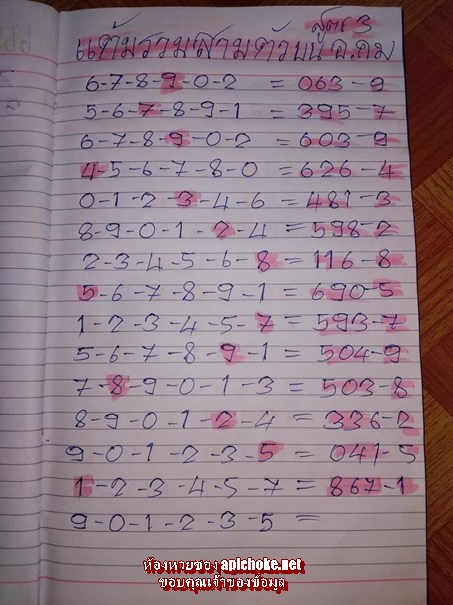 สูตร 3
แต้มรวมสามตัวบน ฉ.ถม
6-7-8-9-0-2 = 063-9
5-6-7-8-9-1 = 395-7
6-7-8-9-0-2 = 603-9
4-5-6-7-8-0 = 626-4
0-1-2-3-4-6 = 481-3
8-9-0-1-2-4 = 598-2
2-3-4-5-6-8 = 116-8
5-6-7-8-9-1 = 690-5
1-2-3-4-5-7 = 593-7
5-6-7-8-9-1 = 504-9
7-8-9-0-1-3 = 503-8
8-9-0-1-2-4 = 336-2
9-0-1-2-3-5 = 041-5
1-2-3-4-5-7 = 867-1
9-0-1-2-3-5 =
ห้องหวยซอง apichoke.net
ขอบคุณเจ้าของข้อมูล